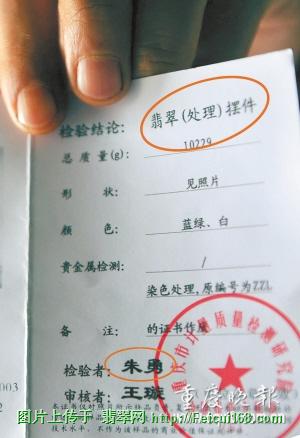 检验结论: 翡翠(处理)摆件
总质量(g): 10229
形 状: 见照片
颜 色: 蓝绿、白
贵金属检测: /
染色处理,原编号为ZZJ
备 注: 的证书作废
检验者: 朱勇
审核者: 王璇
重庆市计量质量检测研究院
003
重庆晚报
图片上传于 翡翠网 http://Feicui168.com